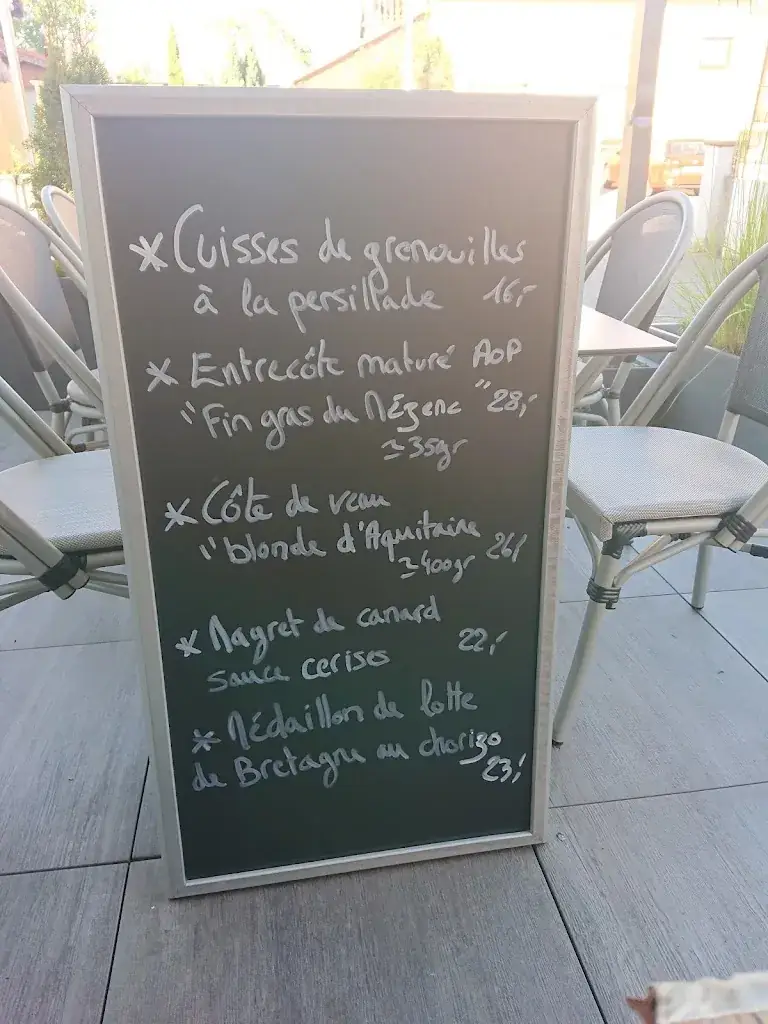 * Cuisses de grenouilles
à la persillade 16,-
* Entrecôte maturé AOP
"Fin gras du Mézenc" 28,-
≃35gr
* Côte de veau
"blonde d'Aquitaine 26,-
≃400gr
* Magret de canard
sauce cerises 22,-
* Médaillon de lotte
de Bretagne au chorizo
23,-